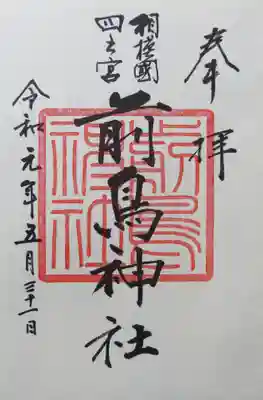 奉拝
相模國
四之宮
前鳥神社
令和元年五月三十一日
前鳥
神社